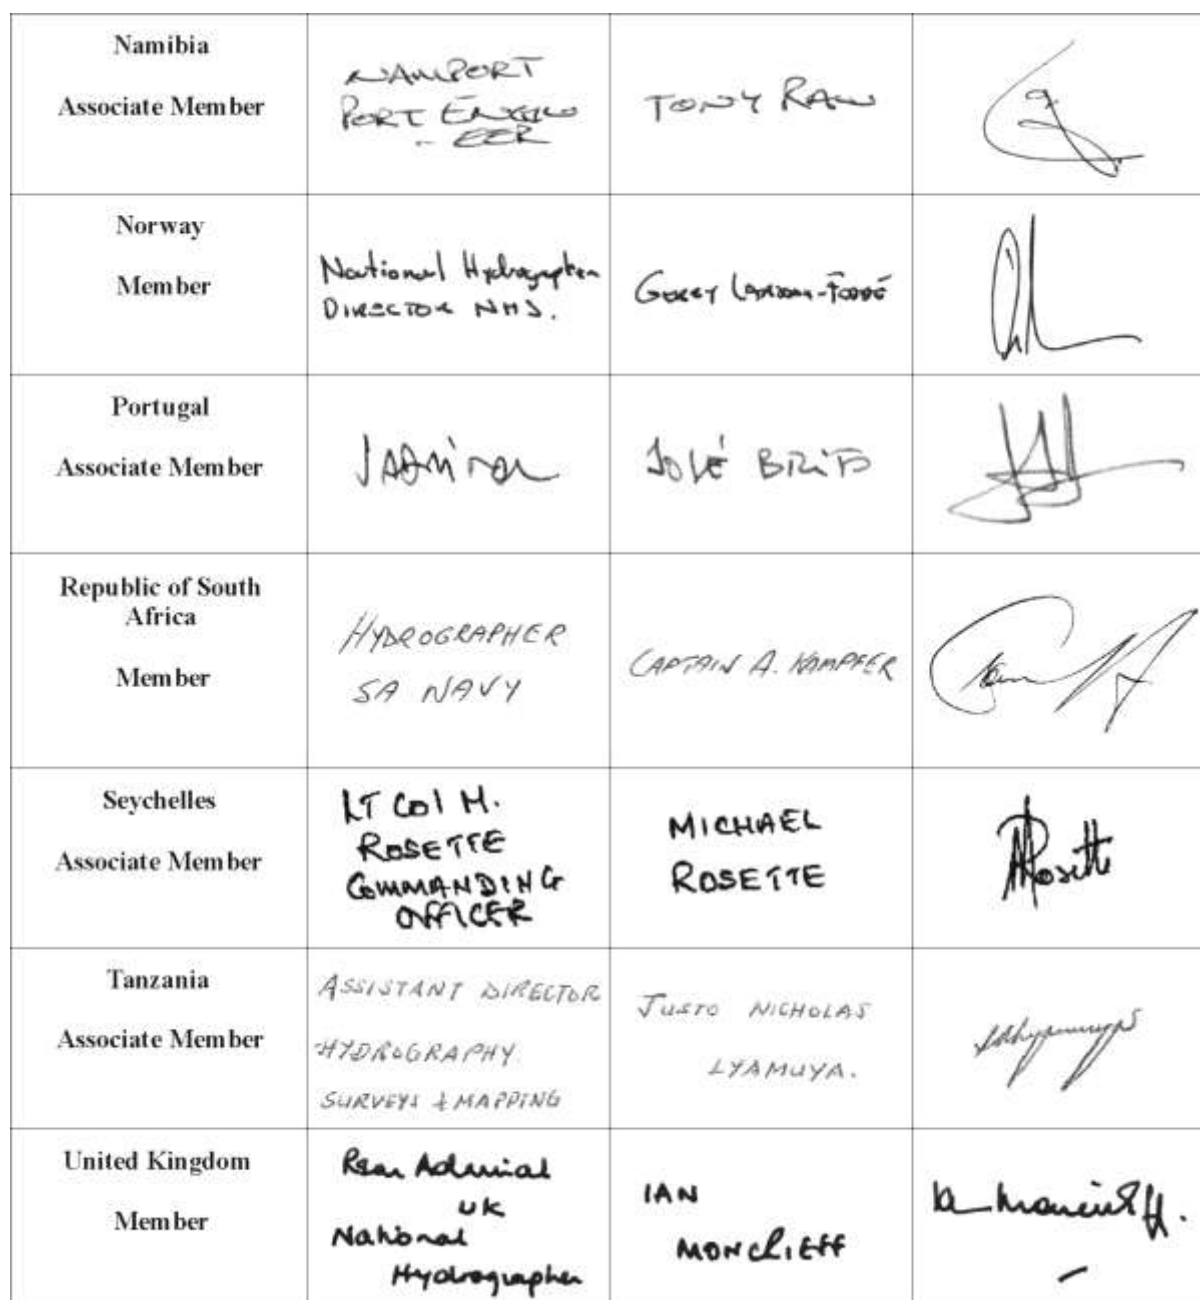 Namibia
Associate Member
NAMPORT
PORT ENGIN
- EER
TONY RAW
Norway
Member
National Hydrographer
DIRECTOR NHS.
GERRY LARSSON-FEDDÉ
Portugal
Associate Member
JOSÉ BRITO
Republic of South
Africa
Member
HYDROGRAPHER
SA NAVY
CAPTAIN A. KAMPFER
Seychelles
Associate Member
LT Col M.
ROSETTE
COMMANDING
OFFICER
MICHAEL
ROSETTE
MRosette
Tanzania
Associate Member
ASSISTANT DIRECTOR
HYDROGRAPHY.
SURVEYS & MAPPING
JUSTO NICHOLAS
LYAMUYA.
United Kingdom
Member
Rear Admiral
UK
National
Hydrographer
IAN
MONCRIEFF